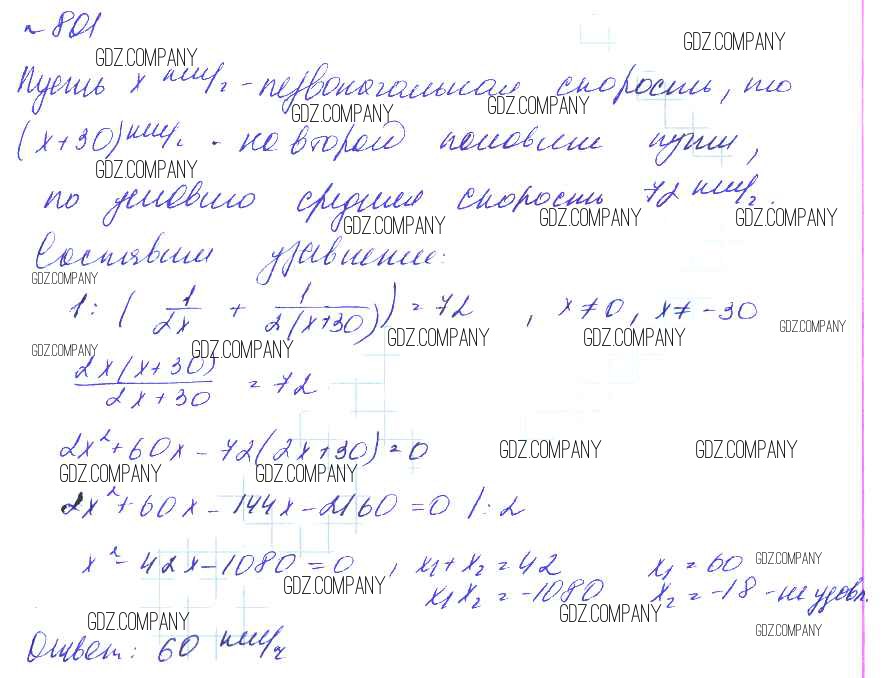 № 801
GDZ.COMPANY GDZ.COMPANY
Пусть x км/ч - первоначальная скорость, то
GDZ.COMPANY GDZ.COMPANY
(x+30) км/ч - на второй половине пути,
GDZ.COMPANY
по условию средняя скорость 72 км/ч.
GDZ.COMPANY GDZ.COMPANY GDZ.COMPANY
Составим уравнение:
GDZ.COMPANY
1 : ( 1/2x + 1/2(x+30) ) = 72 , x ≠ 0, x ≠ -30
GDZ.COMPANY GDZ.COMPANY GDZ.COMPANY
GDZ.COMPANY GDZ.COMPANY
2x(x+30)/2x+30 = 72
2x²+60x - 72(2x+30)=0
GDZ.COMPANY GDZ.COMPANY
GDZ.COMPANY GDZ.COMPANY
2x²+60x - 144x - 2160 = 0 / : 2
x² - 42x - 1080 = 0 , x₁ + x₂ = 42 x₁ = 60
GDZ.COMPANY
GDZ.COMPANY
x₁x₂ = -1080 x₂ = -18 - не удовл.
GDZ.COMPANY GDZ.COMPANY
GDZ.COMPANY
Ответ: 60 км/ч